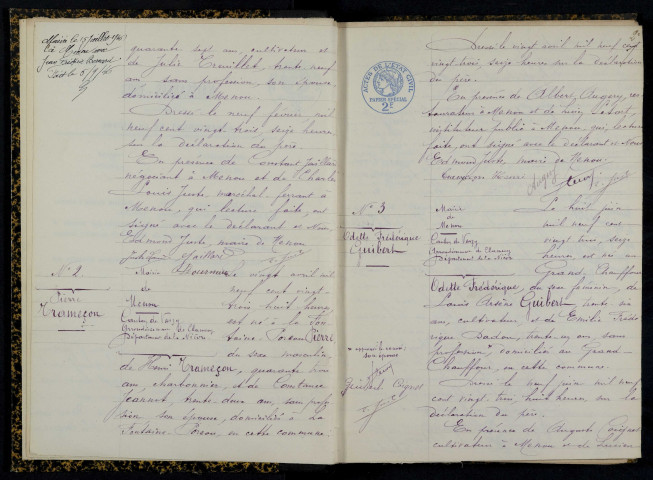 quarante sept ans, cultivateur et
de Julie trente neuf
ans sans profession, son épouse
domiciliés à Menou
Dressé le neuf février mil
neuf cent vingt trois, seize heures
sur la déclaration du père.
En présence de Constant Gaillard
négociant à Menou et de Charles
Louis Juste, maréchal ferrant à
Menou, qui lecture faite, ont
signé avec le déclarant et Nous
Edmond Juste, maire de Menou
N° 2
Pierre
Trameçon
Mairie
de
Menou
Canton de Varzy
Arrondissement de Clamecy
Département de la Nièvre
Le vingt avril mil
neuf cent vingt-
trois huit heures
est né à la Fon-
taine Poison Pierre
du sexe masculin,
de Henri Trameçon, quarante
ans, charbonnier et de Constance
Jeannot, trente deux ans, sans profes-
sion son épouse, domiciliés à La
Fontaine Poison, en cette commune.
Dressé le vingt avril mil neuf cent
vingt-trois, seize heures sur la déclaration
du père.
En présence de Albert Augery, res-
taurateur à Menou et de
instituteur public à Menou, qui, lecture
faite, ont signé avec le déclarant et Nous
Edmond Juste, maire de Menou
ACTES DE L'ÉTAT CIVIL
PAPIER SPÉCIAL
2F
N° 3
Odette Frédérique
Guibert
Mairie
de
Menou
Canton de Varzy
Arrondissement de Clamecy
Département de la Nièvre
Le huit juin
mil neuf cent
vingt trois, seize
heures, est née au
Grand Chauffour
Odette Frédérique, du sexe féminin, de
Louis Guibert, trente six
ans, cultivateur et de Emilie Frédé-
rigue Badou, trente et un ans, sans
profession domiciliés au Grand
Chauffour, en cette commune.
Dressé le neuf juin mil neuf
cent vingt trois huit heures sur la
déclaration du père.
En présence de Auguste
cultivateur à Menou et de Lucien